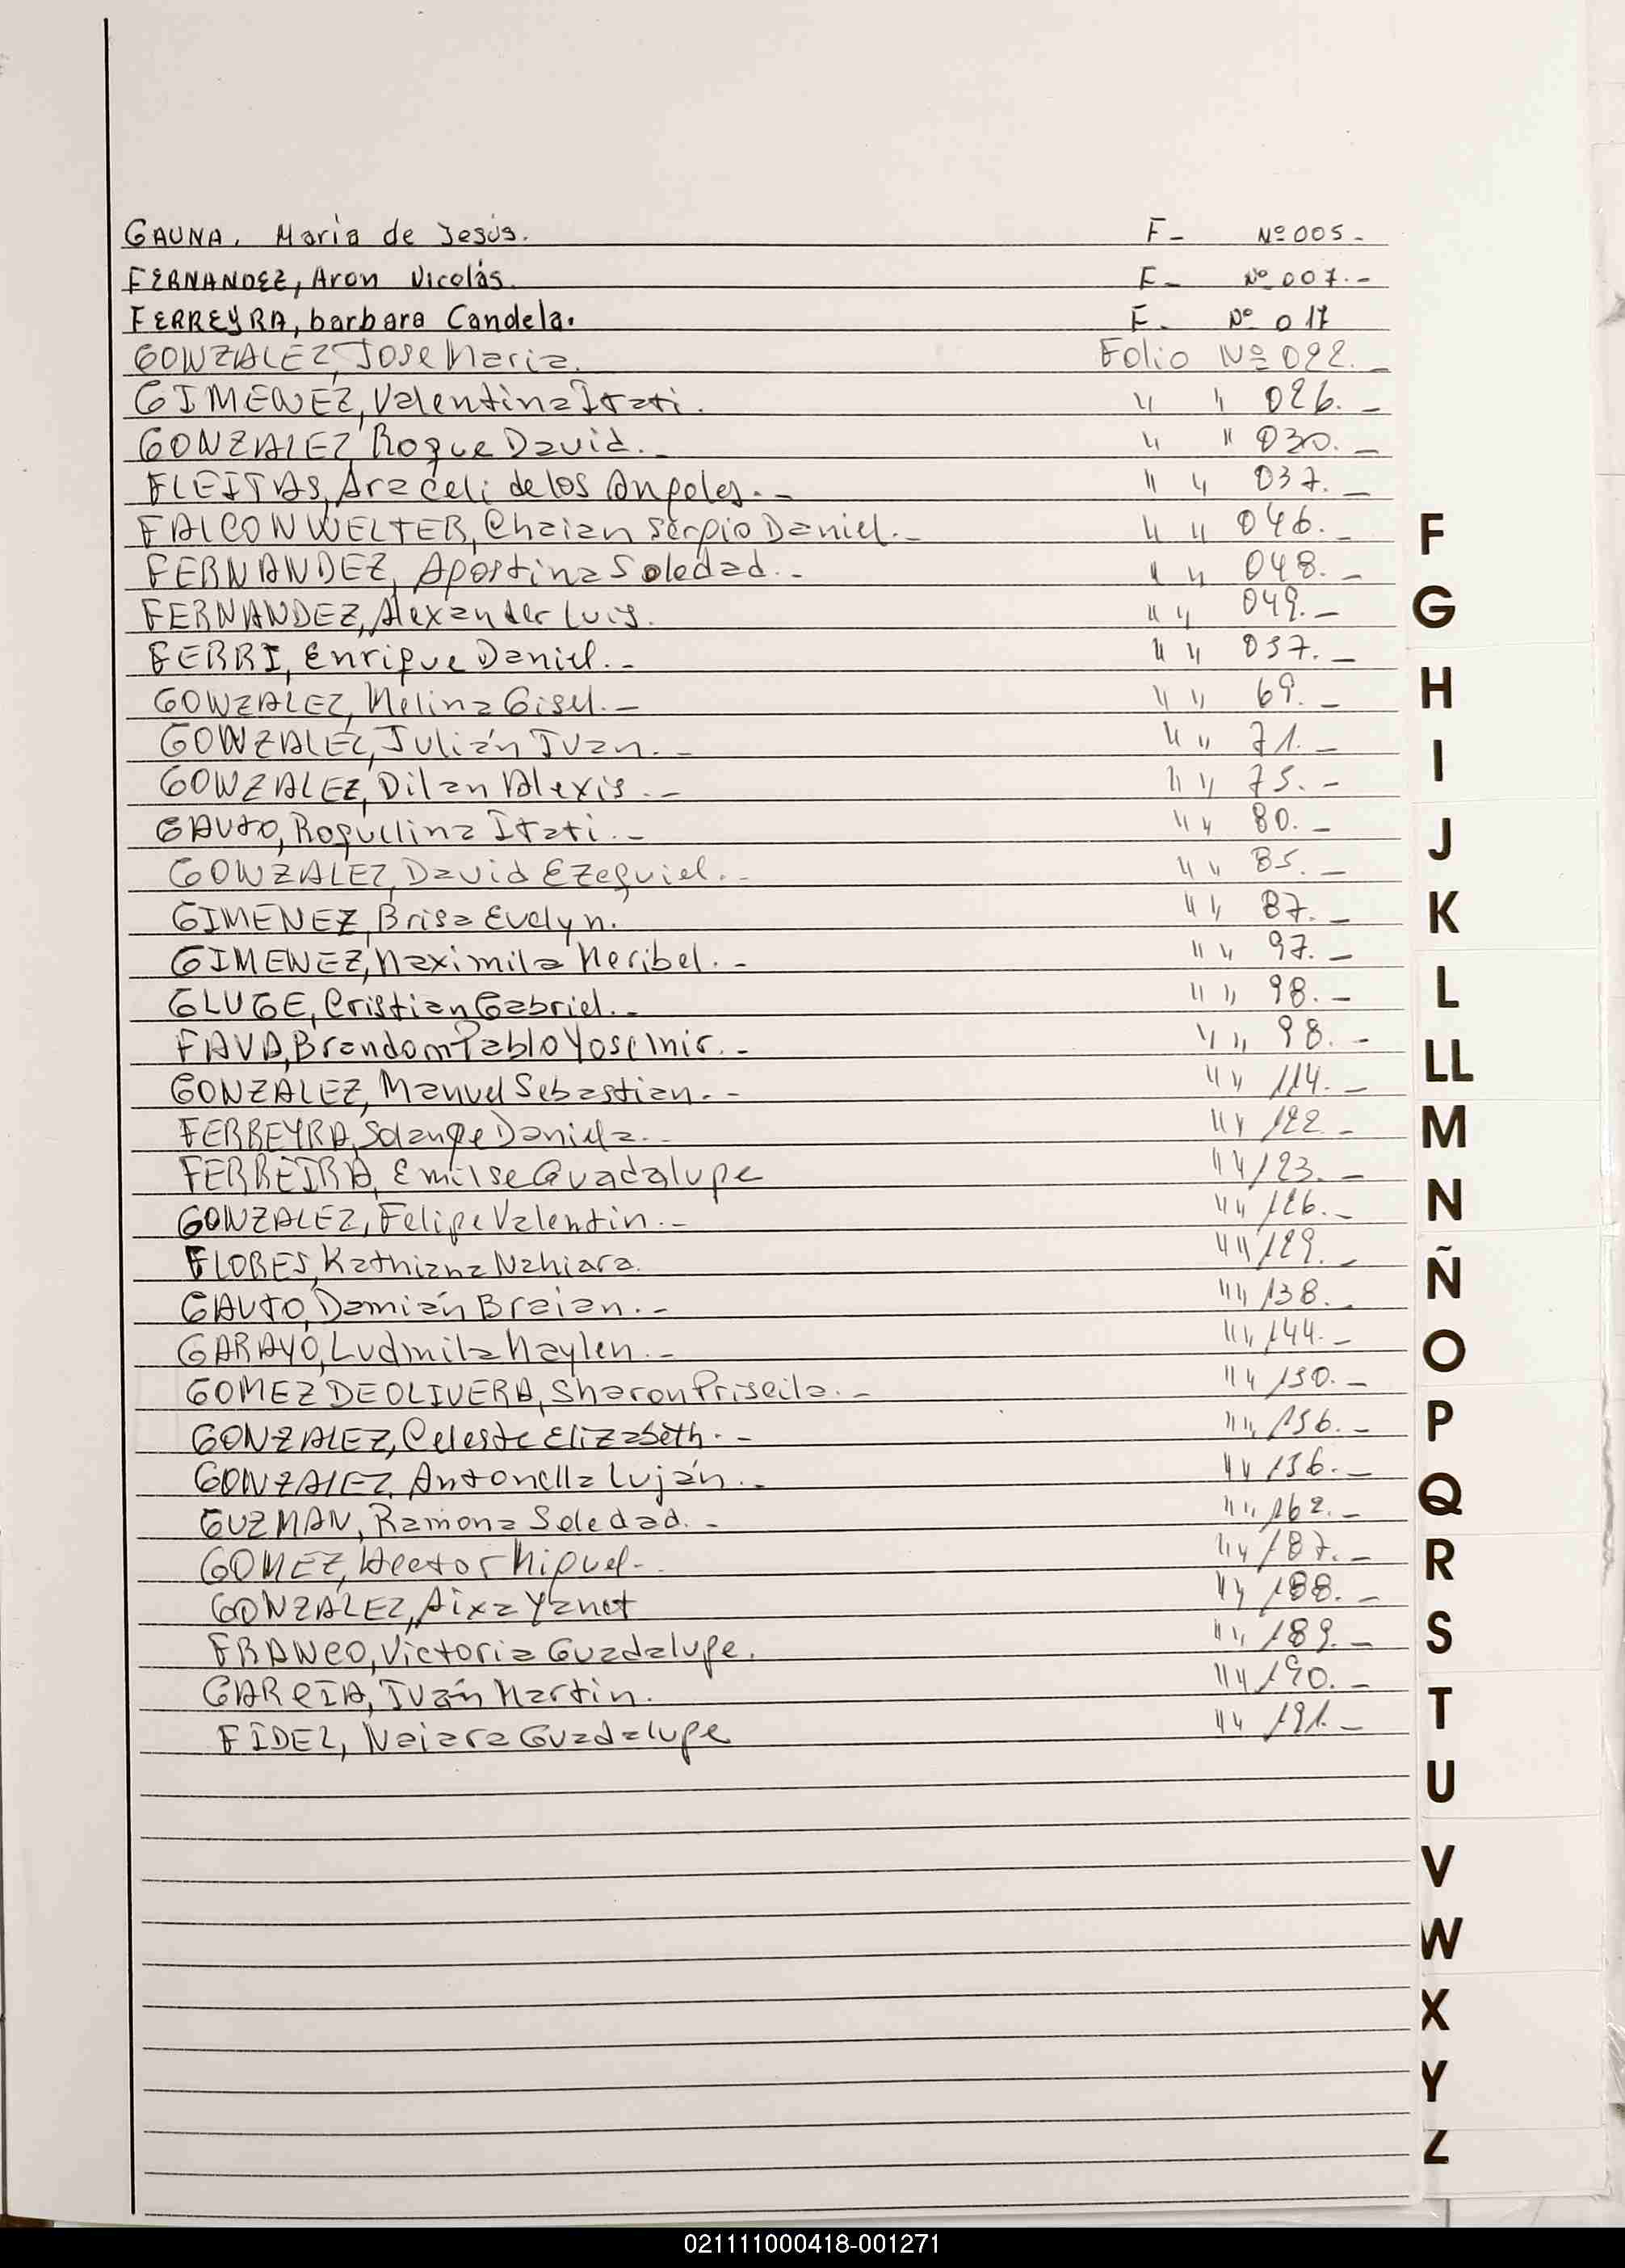 GAUNA, María de Jesús. F- Nº 005-
FERNANDEZ, Aron Nicolás. F- Nº 007.-
FERREYRA, barbara Candela. F- Nº 017
GONZALEZ, Jose Maria. Folio Nº 022.-
GIMENEZ, Valentina Itati. " " 026.-
GONZALEZ, Roque David.- " " 030.-
FLEITAS, Araceli de los Angeles.- " " 037.-
FALCON WELTER, Chaian Sergio Daniel.- " " 046.-
FERNANDEZ, Agostina Soledad.- " " 048.-
FERNANDEZ, Alexander Luis. " " 049.-
FERRI, Enrique Daniel.- " " 057.-
GONZALEZ, Melina Gisel.- " " 69.-
GONZALEZ, Julián Ivan.- " " 71.-
GONZALEZ, Dilan Alexis.- " " 75.-
GAUTO, Roquelina Itati.- " " 80.-
GONZALEZ, David Ezequiel.- " " 85.-
GIMENEZ, Brisa Evelyn. " " 87.-
GIMENEZ, Maximila Maribel.- " " 97.-
GLUGE, Cristian Gabriel.- " " 98.-
FAVA, Brandom Pablo " " 98.-
GONZALEZ, Manuel Sebastian.- " " 114.-
FERREYRA, Solange Daniela.- " " 122.-
FERREIRA, Emilse Guadalupe " " 123.-
GONZALEZ, Felipe Valentin.- " " 126.-
FLORES, Kathiana Nahiara. " " 129.-
GAUTO, Damián Braian.- " " 138.-
GARAYO, Ludmila Maylen.- " " 144.-
GOMEZ DE OLIVERA, Sharon Priscila.- " " 150.-
GONZALEZ, Celeste Elizabeth.- " " 156.-
GONZALEZ, Antonella Luján.- " " 156.-
GUZMAN, Ramona Soledad.- " " 162.-
GOMEZ, Hector Miguel.- " " 187.-
GONZALEZ, Aixa Yanet " " 188.-
FRANCO, Victoria Guadalupe. " " 189.-
GARCIA, Iván Martin. " " 190.-
FIDEL, Naiara Guadalupe " " 191.-
F
G
H
I
J
K
L
LL
M
N
Ñ
O
P
Q
R
S
T
U
V
W
X
Y
Z
021111000418-001271